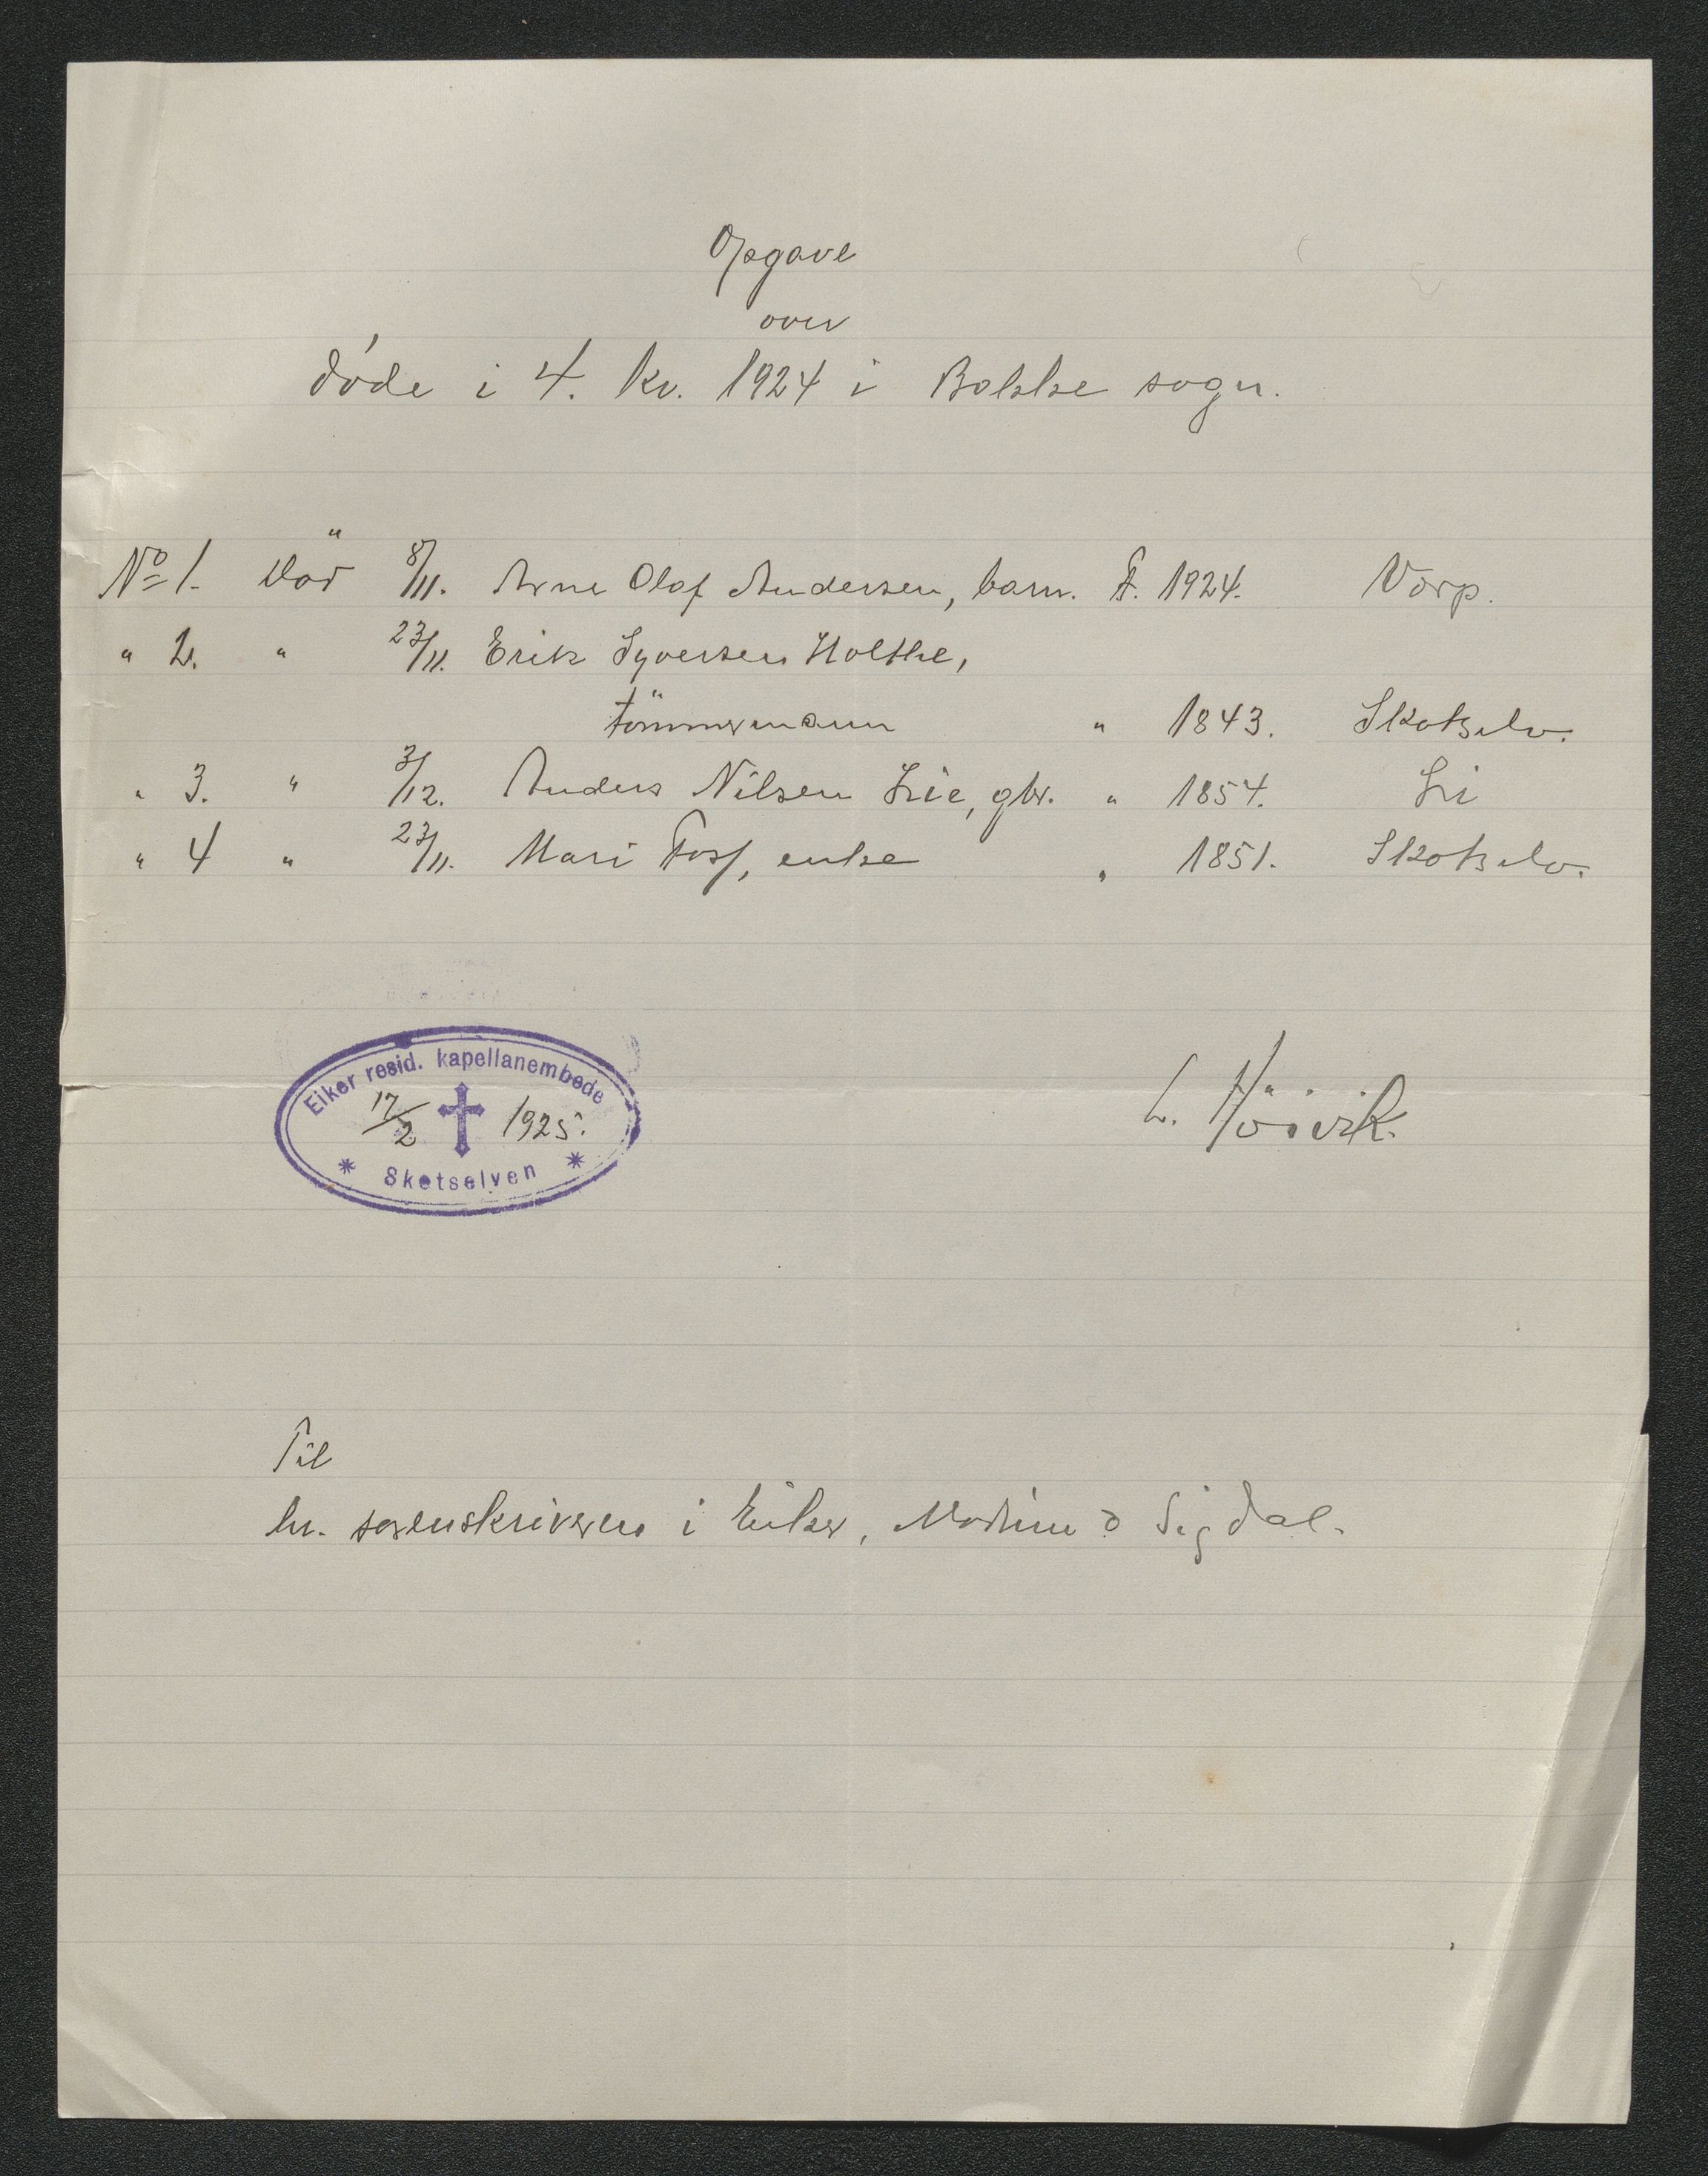 Opgave
over
døde i 4. kv. 1924 i Bakke sogn.
No 1. Död 8/11. Arne Olaf Andersen, barn. F. 1924. Vorp.
" 2. " 23/11. Erik Syversen Holthe,
tömmermann " 1843. Skotselv.
" 3. " 3/12. Anders Nilsen Lie, gbr. " 1854. Li
" 4 " 23/11. Mari Foss, enke " 1851. Skotselv.
Eiker resid. kapellanembede
17/2 1925.
Skotselven
L. Höivik.
Til
hr. sorenskriveren i Eiker, Modum & Sigdal.